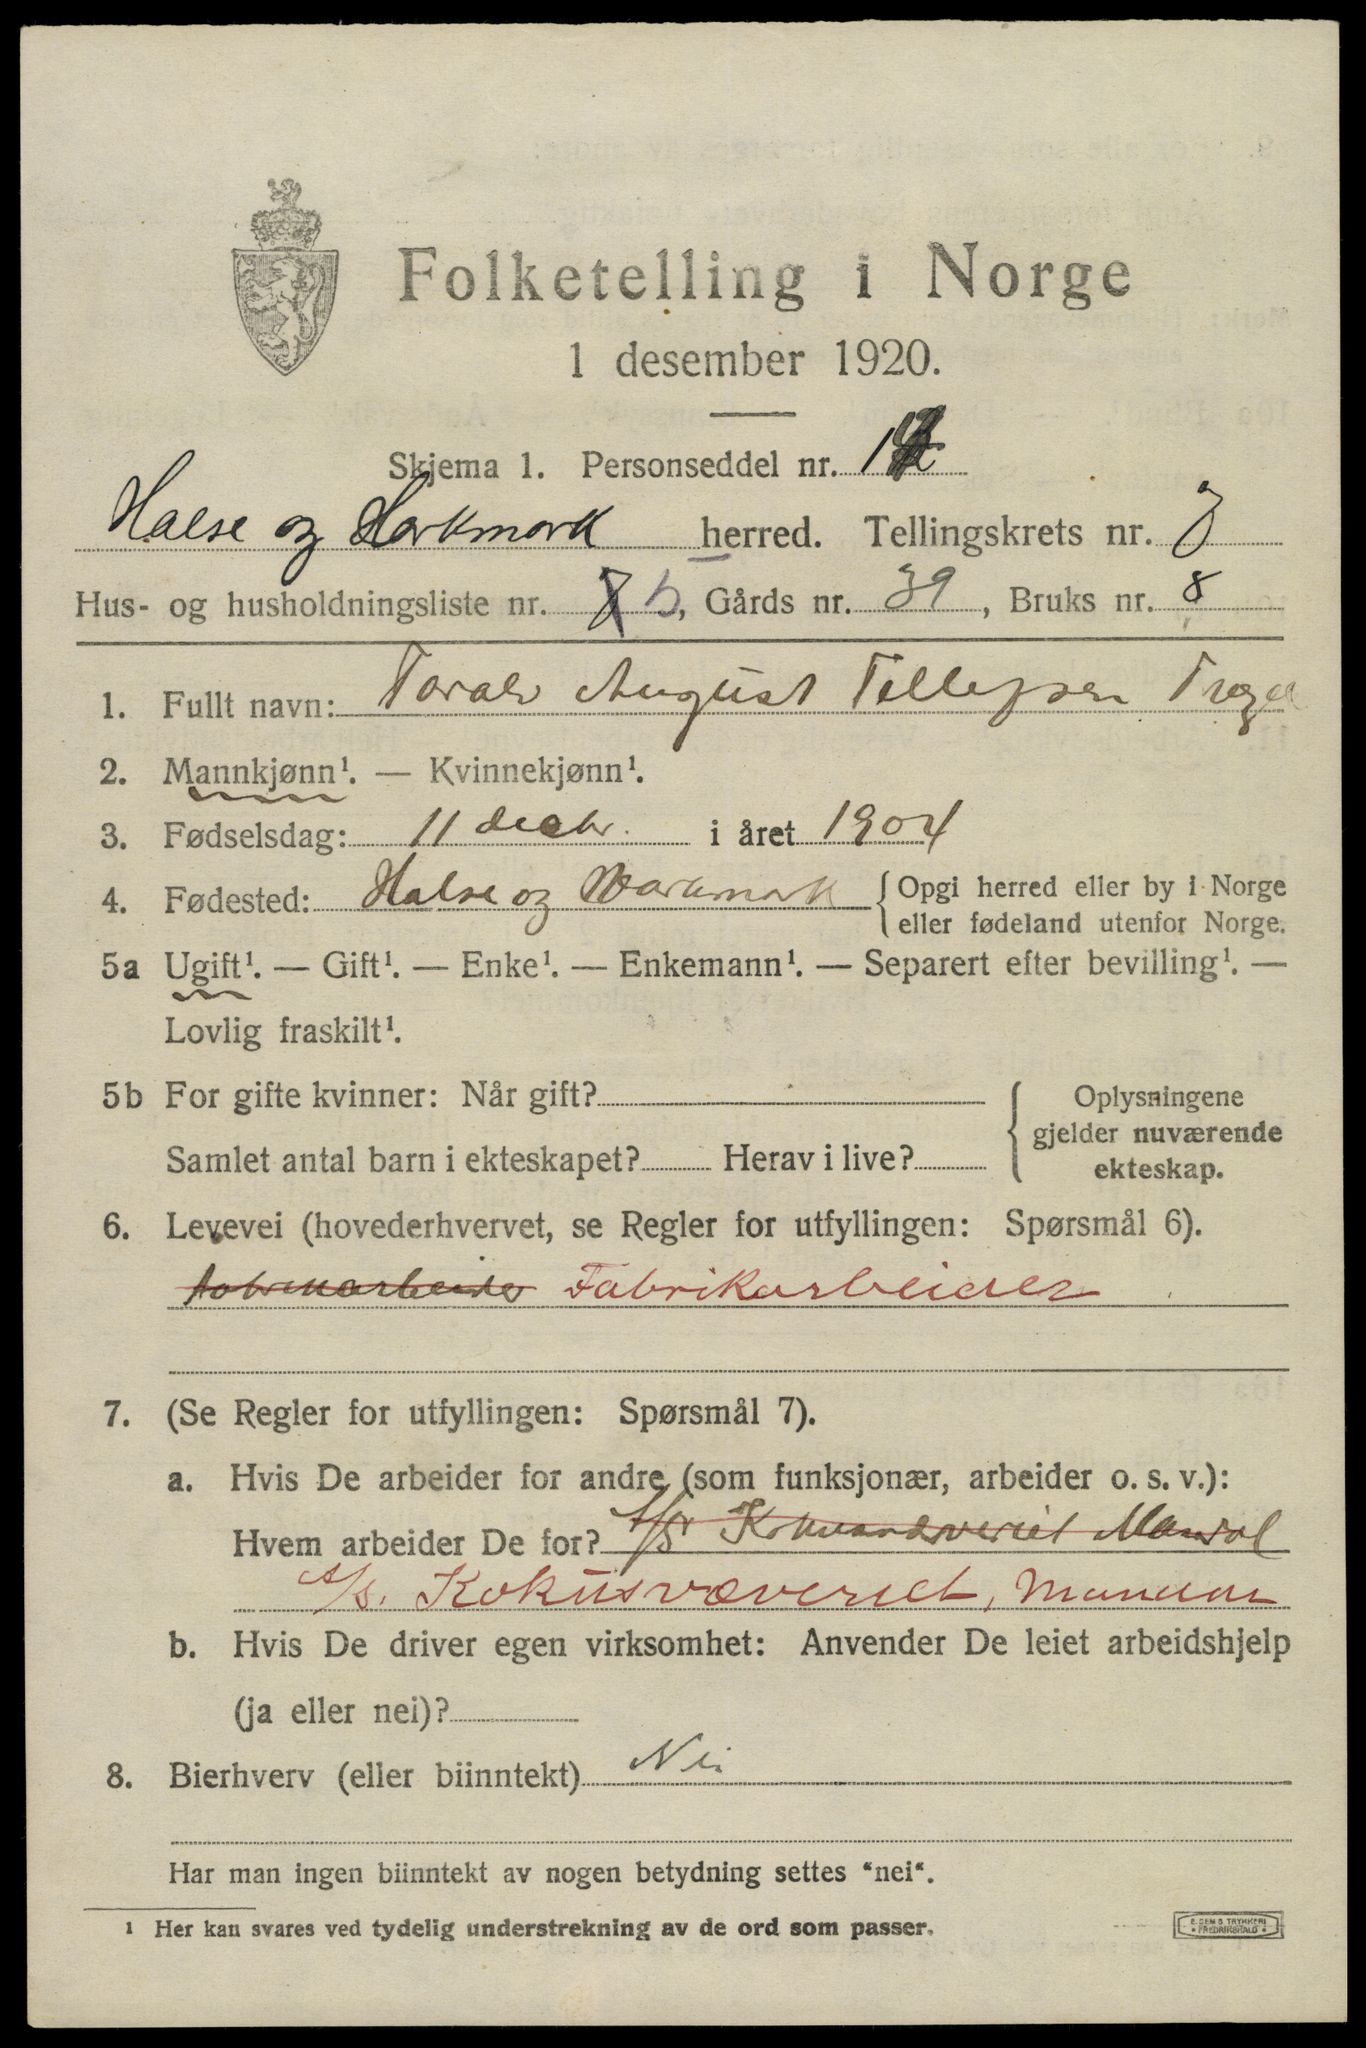 Folketelling i Norge
1 desember 1920.
Skjema 1. Personseddel nr.
Halse og Harkmark herred. Tellingskrets nr. 7
Hus- og husholdningsliste nr. 5, Gårds nr. 39, Bruks nr. 8
1. Fullt navn: August Tellefsen
2. Mannkjønn¹. — Kvinnekjønn¹.
3. Fødselsdag: 11 decbr. i året 1904
4. Fødested: Halse og Harkmark {Opgi herred eller by i Norge
eller fødeland utenfor Norge.
5a Ugift¹. — Gift¹. — Enke¹. — Enkemann¹. — Separert efter bevilling¹. —
Lovlig fraskilt¹.
5b For gifte kvinner: Når gift?
Samlet antal barn i ekteskapet? Herav i live?
Oplysningene
gjelder nuværende
ekteskap.
6. Levevei (hovederhvervet, se Regler for utfyllingen: Spørsmål 6).
Fabrikarbeider
7. (Se Regler for utfyllingen: Spørsmål 7).
a. Hvis De arbeider for andre (som funksjonær, arbeider o. s. v.):
Hvem arbeider De for? A/S Mandal
A/S. Kokusvæveriet, Mandal
b. Hvis De driver egen virksomhet: Anvender De leiet arbeidshjelp
(ja eller nei)?
8. Bierhverv (eller biinntekt) Nei
Har man ingen biinntekt av nogen betydning settes "nei".
¹ Her kan svares ved tydelig understrekning av de ord som passer.
E. SEMS TRYKKERI
FREDRIKSHALD